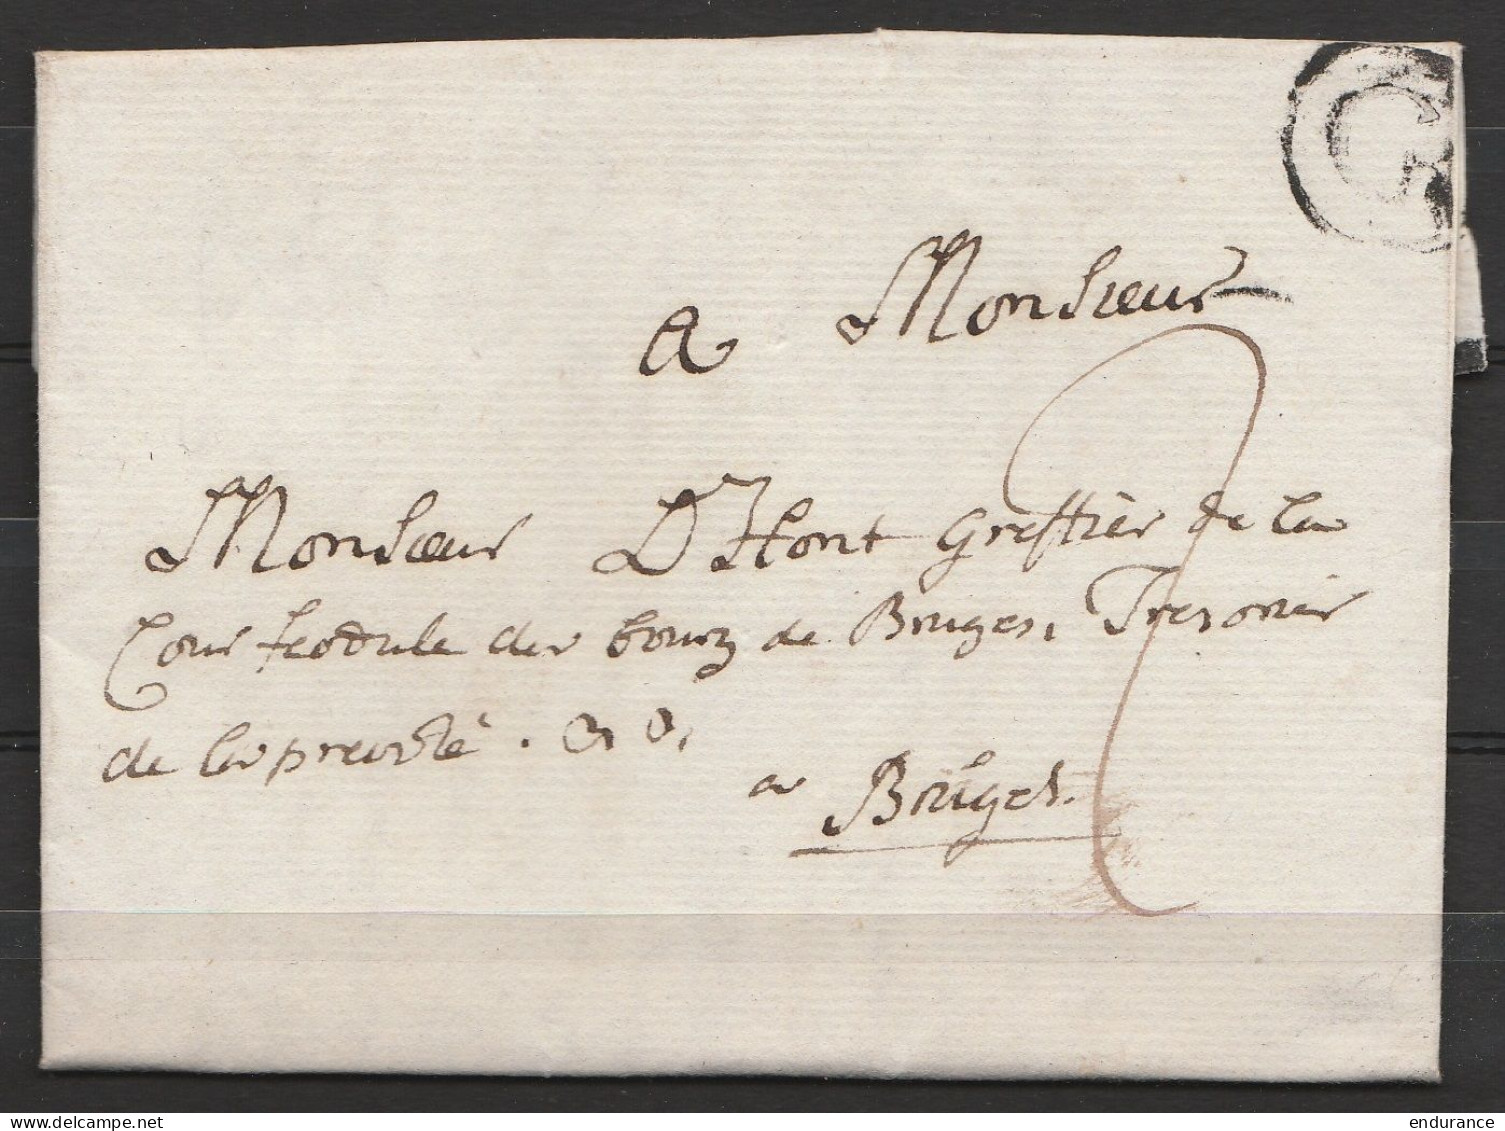 G
a Monsieur
Monsieur D'Hont Greffier de la
Cour feodale du bourg de Bruges, Tresorier
de la prevoté . &c &c,
a Bruges.
2
delcampe.net
endurance